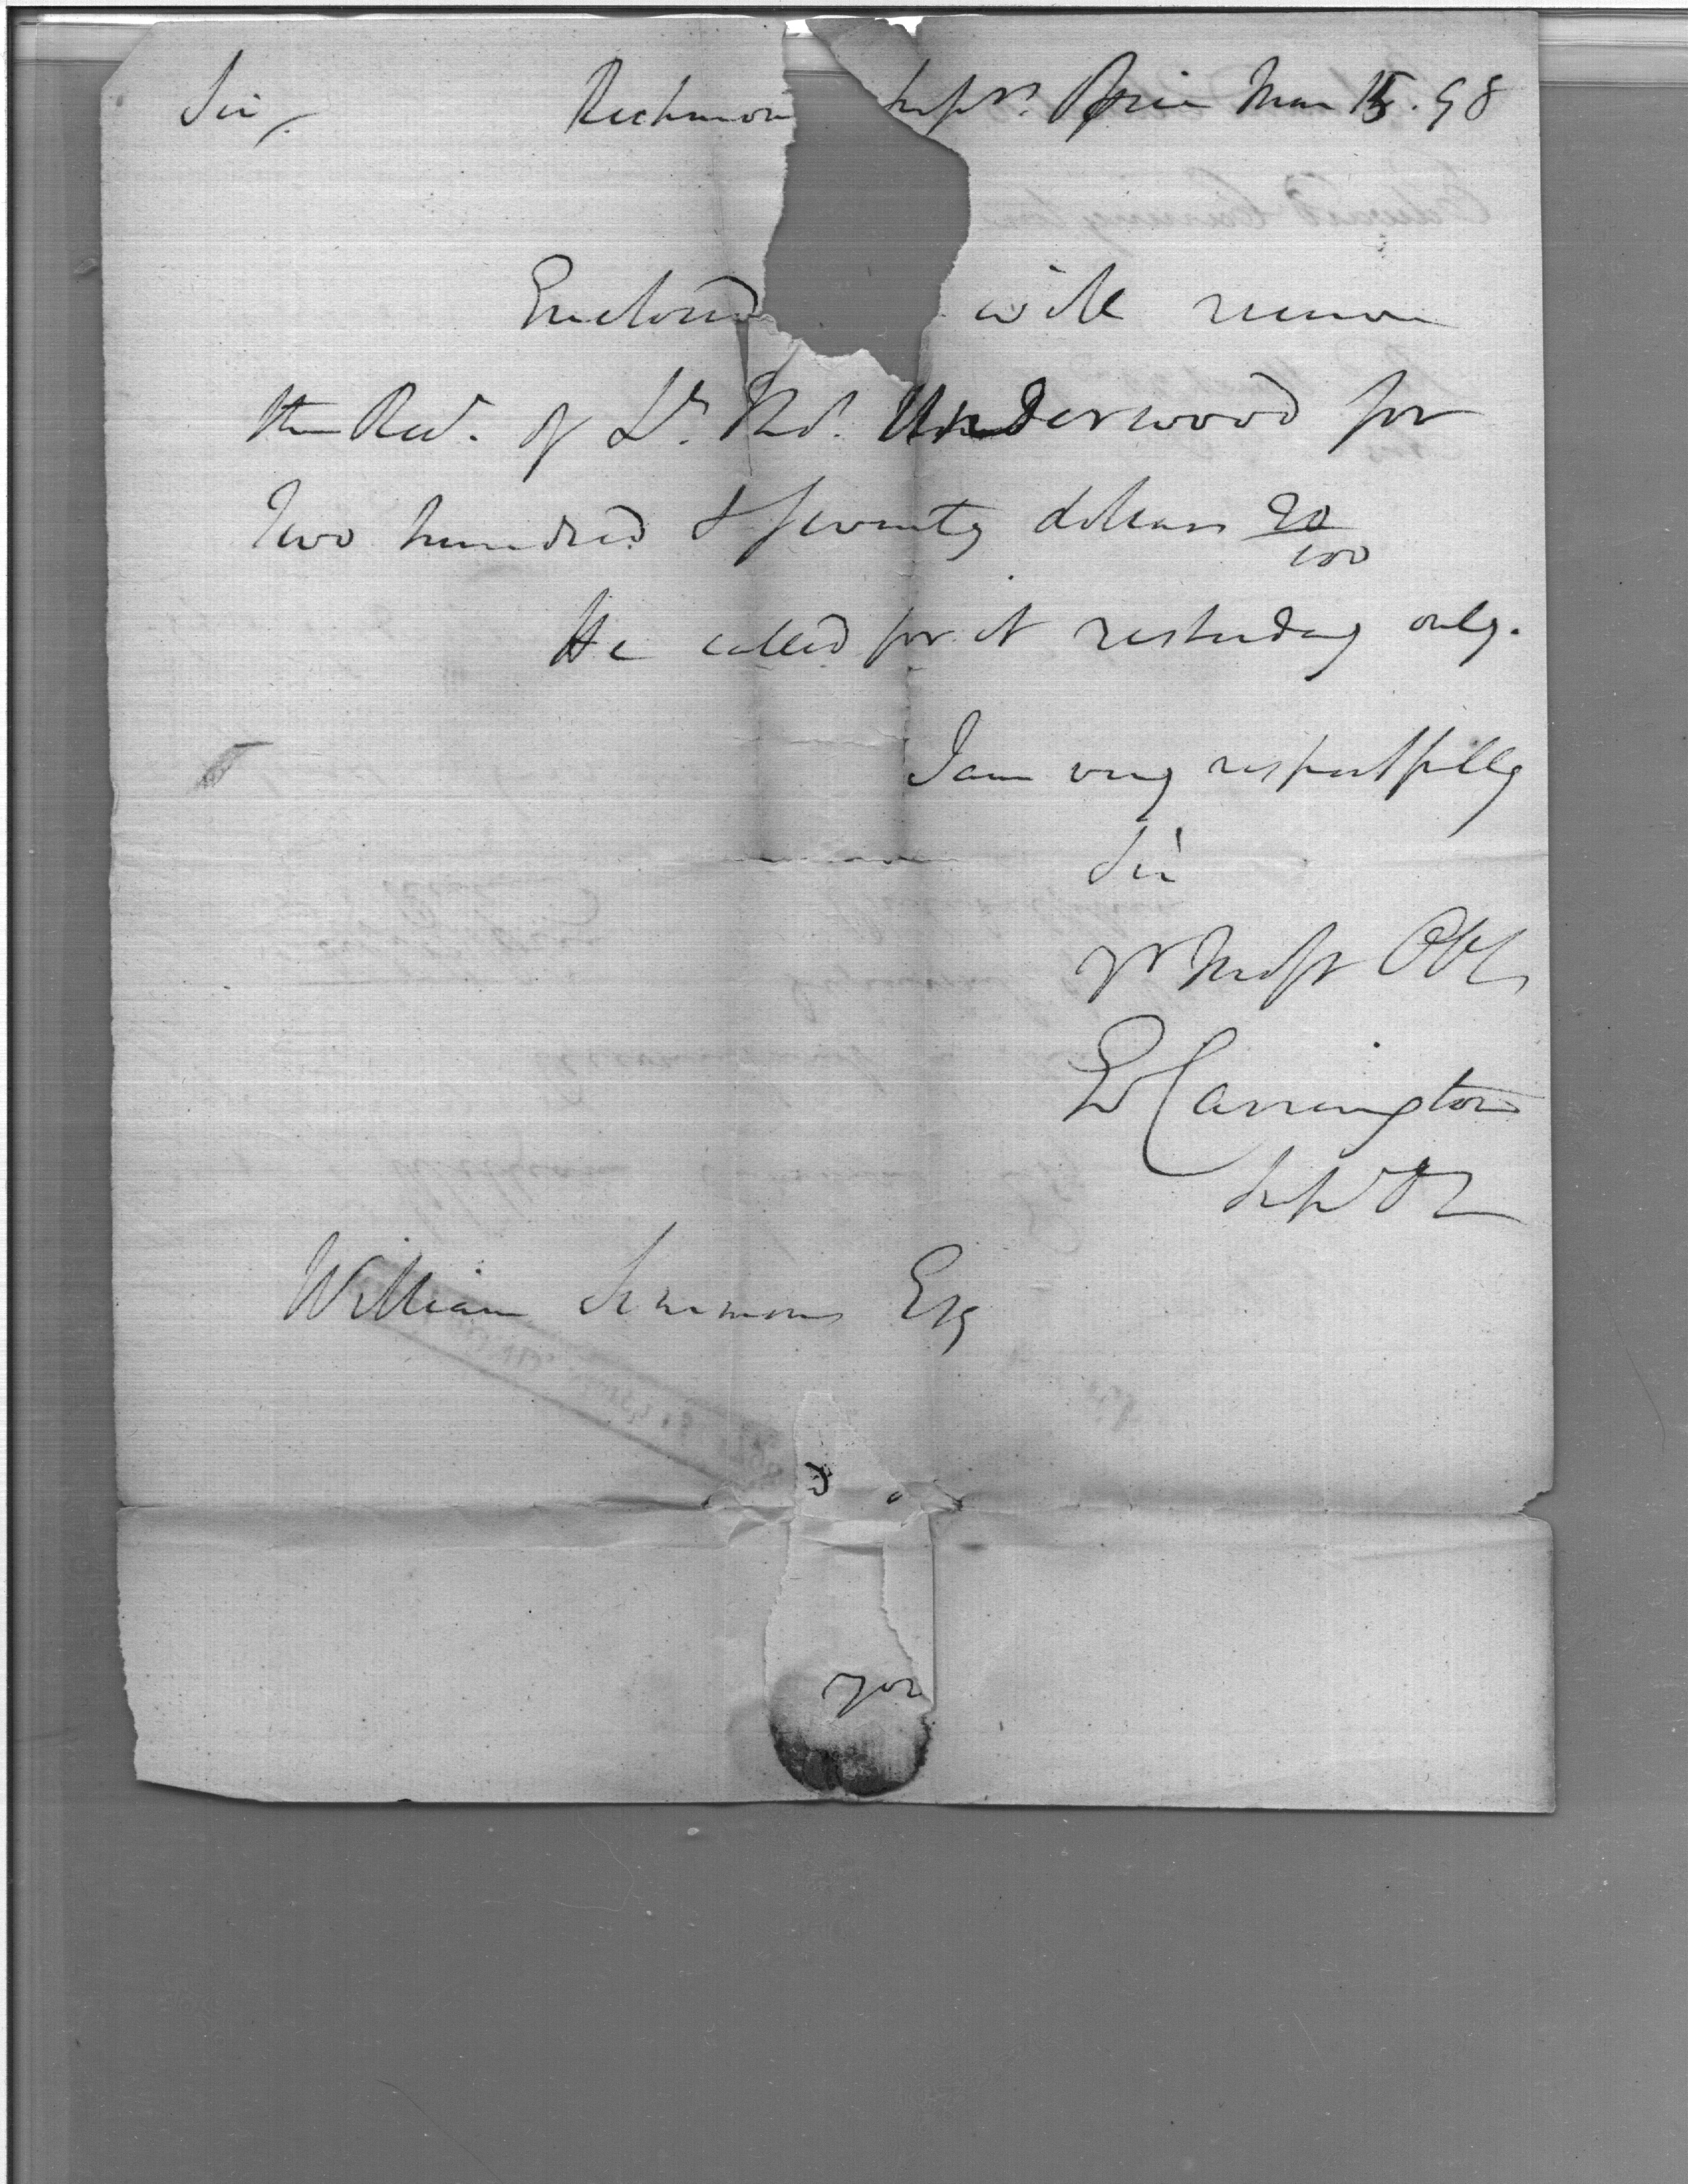 Sir, Richmon Supvrs Office Mar 15. 98
Enclosed will receive
the Rect. of Lt. Rd. Underwood for
Two hundred & seventy dollars 90/100
He called for it yesterday only.
I am very respectfully
Sir
Yr Most Obt
Ed Carrington
William Simmons Esq
you